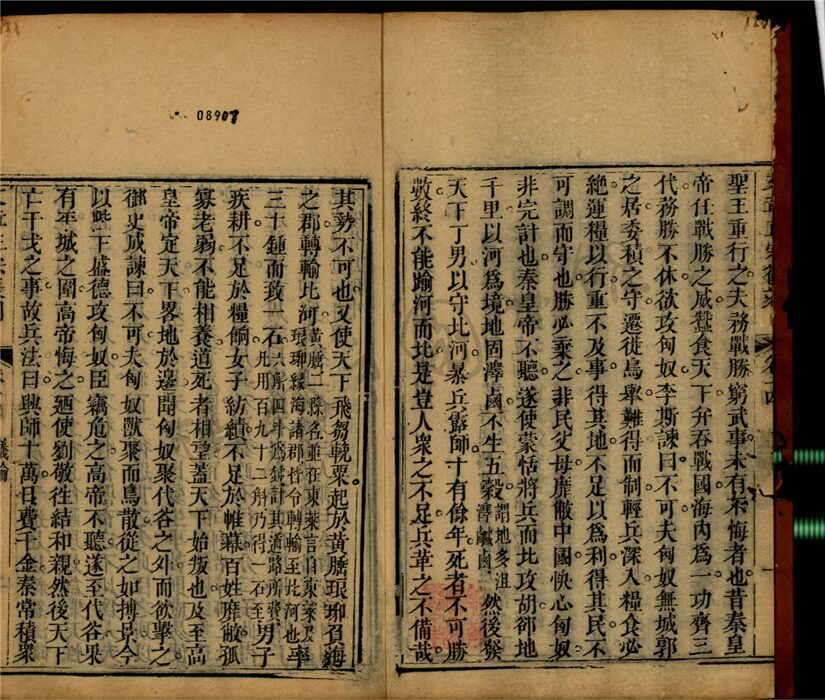 聖王重行之夫務戰勝窮武事未有不悔者也昔秦皇
帝任戰勝之威蠶食天下弁吞戰國海内爲一功齊三
代務勝不休欲攻匈奴李斯諫曰不可夫匈奴無城郭
之居委積之守遷徙鳥舉難得而制輕兵深入糧食必
絶運糧以行重不及事得其地不足以爲利得其民不
可調而守也勝必棄之非民父母靡敝中國快心匈奴
非完計也秦皇帝不聽遂使蒙恬將兵而北攻胡郤地
千里以河爲境地固澤鹵不生五穀謂地多沮澤鹹鹵然後發
天下丁男以守北河暴兵露師十有餘年死者不可勝
數終不能踰河而北是豈人衆之不足兵革之不備哉
08907
其勢不可也又使天下飛芻輓粟起於黃腄琅琊負海
之郡轉輸北河黃腄二縣名並在東萊言自東萊及琅琊緣海諸郡皆令轉輸至北河也率
三十鍾而致一石六斛四斗爲鍾計其道路所費凡用百九十二斛乃得一石至男子
疾耕不足於糧餉女子紡績不足於帷幕百姓靡敝孤
寡老弱不能相養道死者相望蓋天下始叛也及至高
皇帝定天下畧地於邊聞匈奴聚代谷之外而欲擊之
御史成諫曰不可夫匈奴獸聚而鳥散從之如搏景今
以陛下盛德攻匈奴臣竊危之高帝不聽遂至代谷果
有平城之圍高帝悔之廼使劉敬往結和親然後天下
亡干戈之事故兵法曰興師十萬日費千金秦常積衆
議論